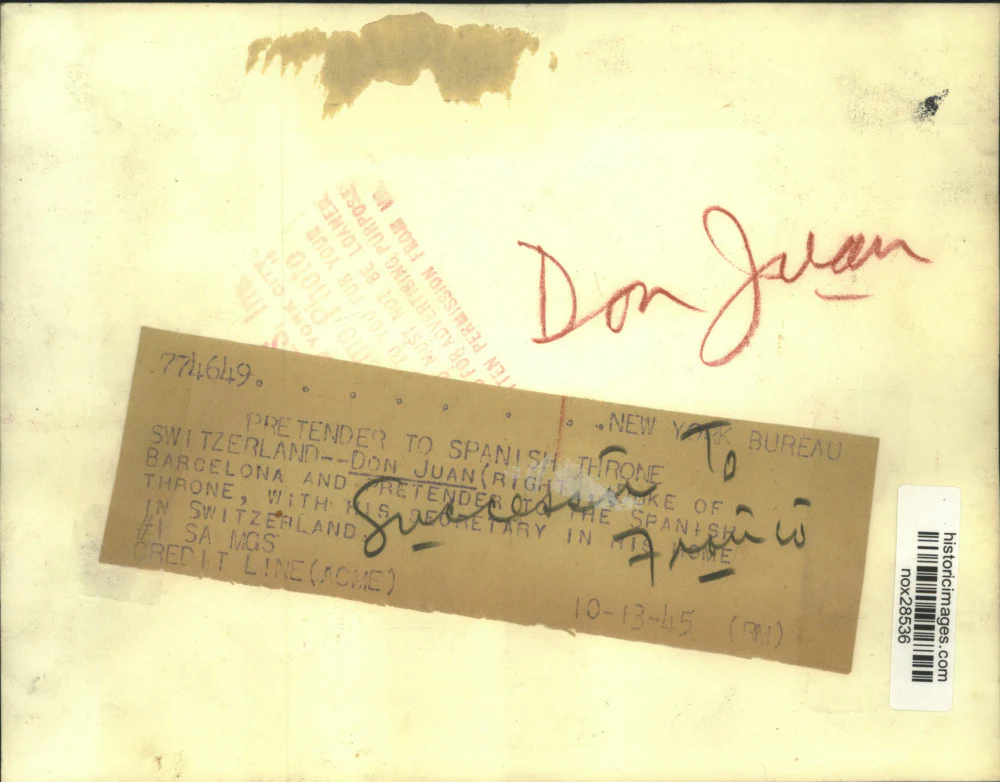 Don Juan
774649. . . . . . . . .NEW YORK BUREAU
PRETENDER TO SPANISH THRONE
SWITZERLAND--DON JUAN(RIGHT DUKE OF
BARCELONA AND PRETENDER TO THE SPANISH
THRONE, WITH HIS SECRETARY IN HIS HOME
IN SWITZERLAND.
#1 SA MGS
CREDIT LINE(ACME)
10-13-45 (RM)
To
Franco
Inc
YORK CITY
Photo
TO YOU FOR YOUR
MUST NOT BE LOANED
FOR ADVERTISING PURPOSE
TTEN PERMISSION FROM
historicimages.com
nox28536